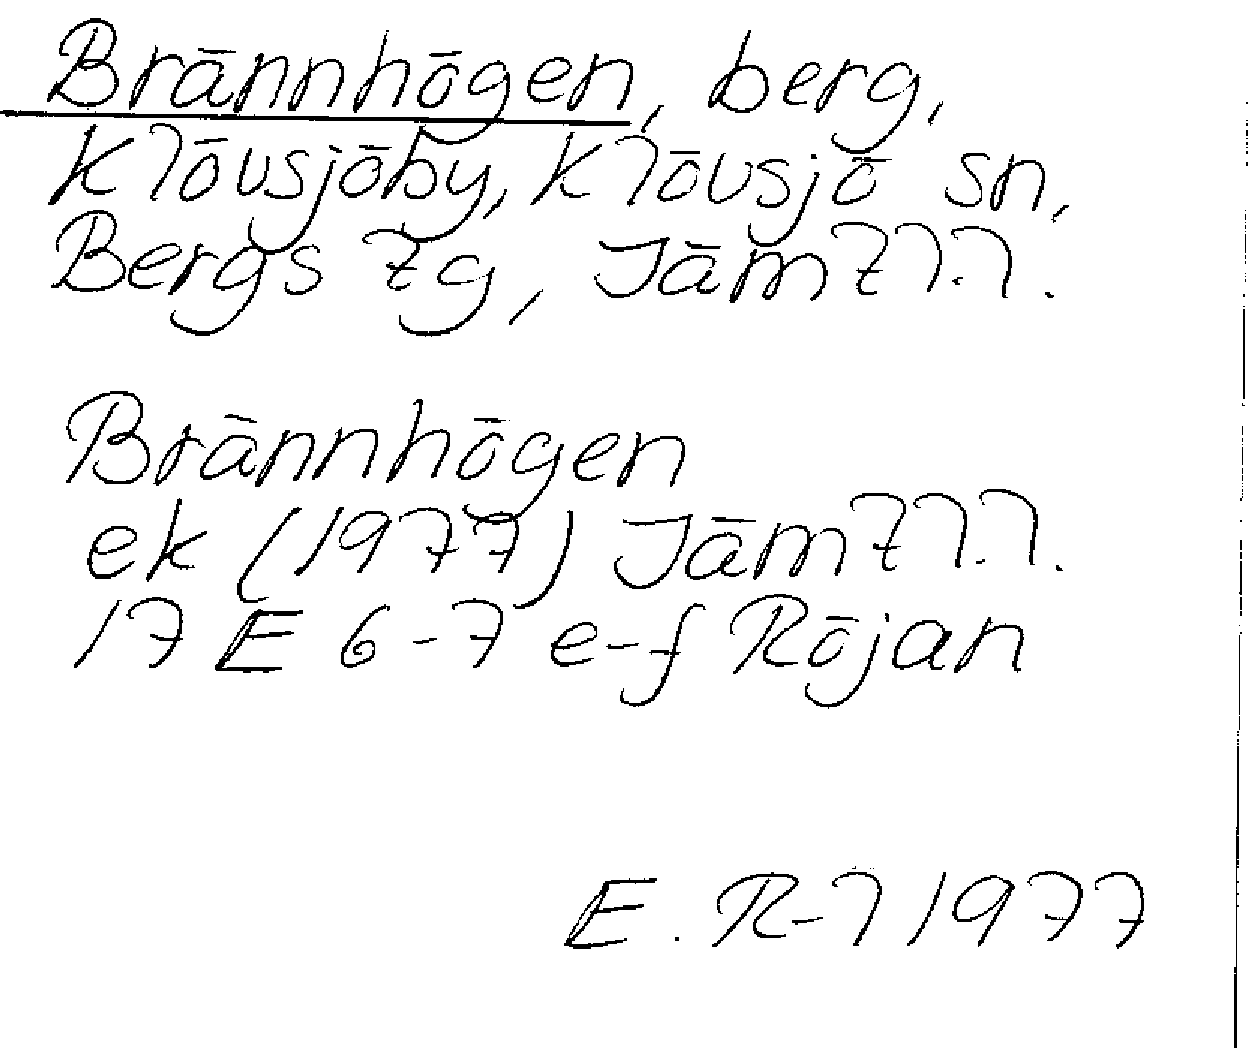 Brännhögen, berg,
Klövsjöby, Klövsjö sn,
Bergs tg, Jämtl. l.
Brännhögen
ek (1977) Jämtl. l.
17 E 6-7 e-f Röjan
E. R-l 1977